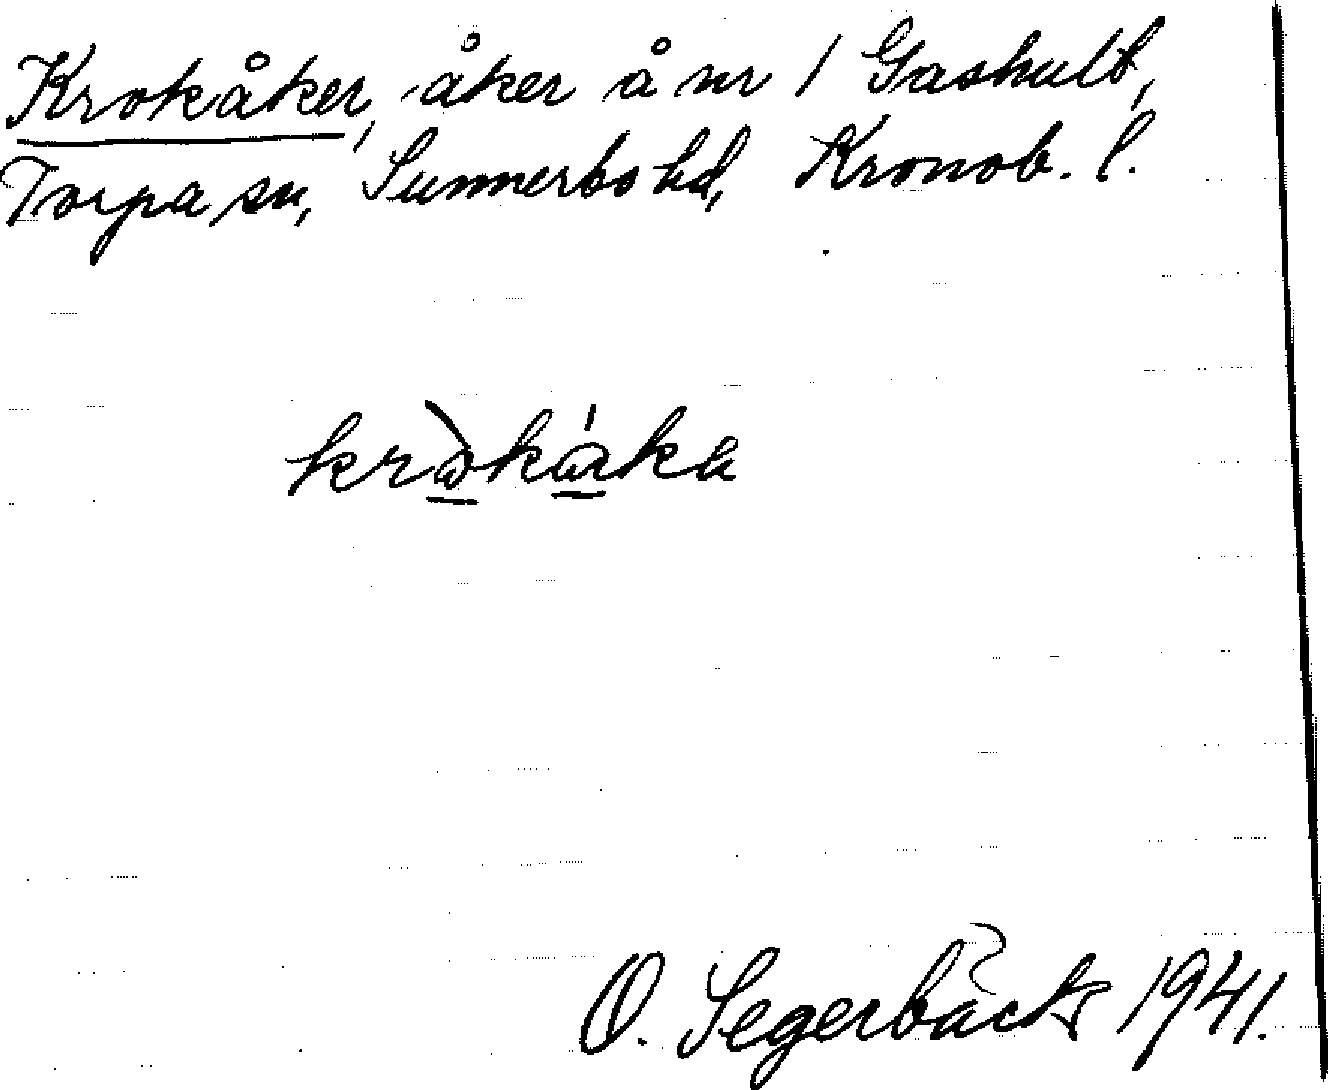 Krokåker, åker å nr 1 Gashult,
Torpa sn, Sunnerbo hd, Kronob. l.
krɷ̀kɷ́ka
O. Segerbäck 1941.